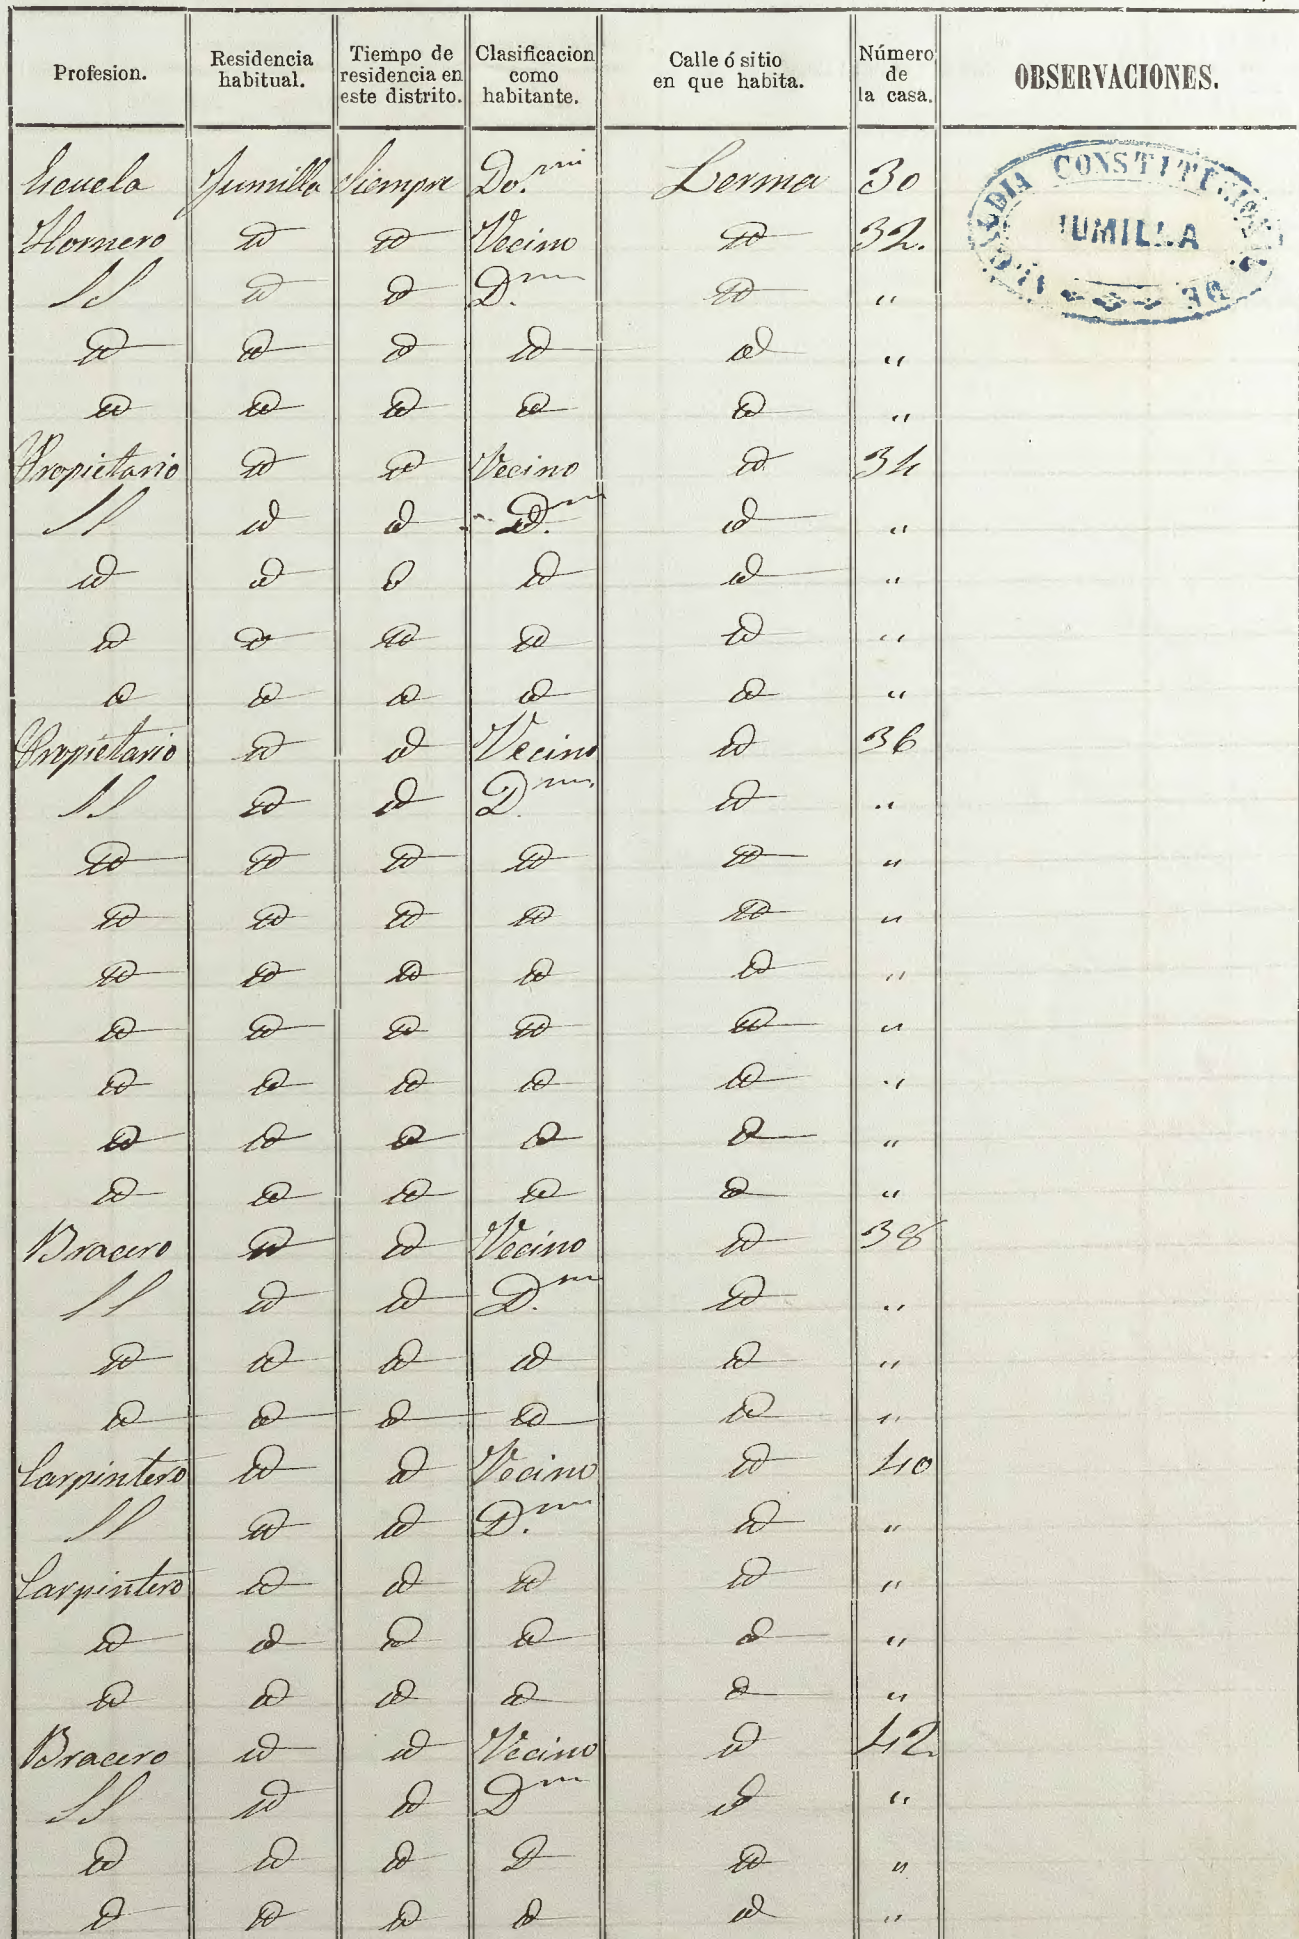 Profesion. Residencia habitual. Tiempo de residencia en este distrito. Clasificacion como habitante. Calle ó sitio en que habita. Número de la casa. OBSERVACIONES.
Escuela Jumilla Siempre Do.mi Lerma 30
Hornero id id Vecino id 32.
SS id id D.m id "
id id id id id "
id id id id id "
Propietario id id Vecino id 34
SS id id D.m id "
id id id id id "
id id id id id "
id id id id id "
Propietario id id Vecino id 36
SS id id D.m id "
id id id id id "
id id id id id "
id id id id id "
id id id id id "
id id id id id "
id id id id id "
id id id id id "
Bracero id id Vecino id 38
SS id id D.m id "
id id id id id "
id id id id id "
Carpintero id id Vecino id 40
SS id id D.m id "
Carpintero id id id id "
id id id id id "
id id id id id "
Bracero id id Vecino id 42
SS id id Dm id "
id id id D id "
id id id id id "
ALCALDIA CONSTITUCIONAL DE
JUMILLA